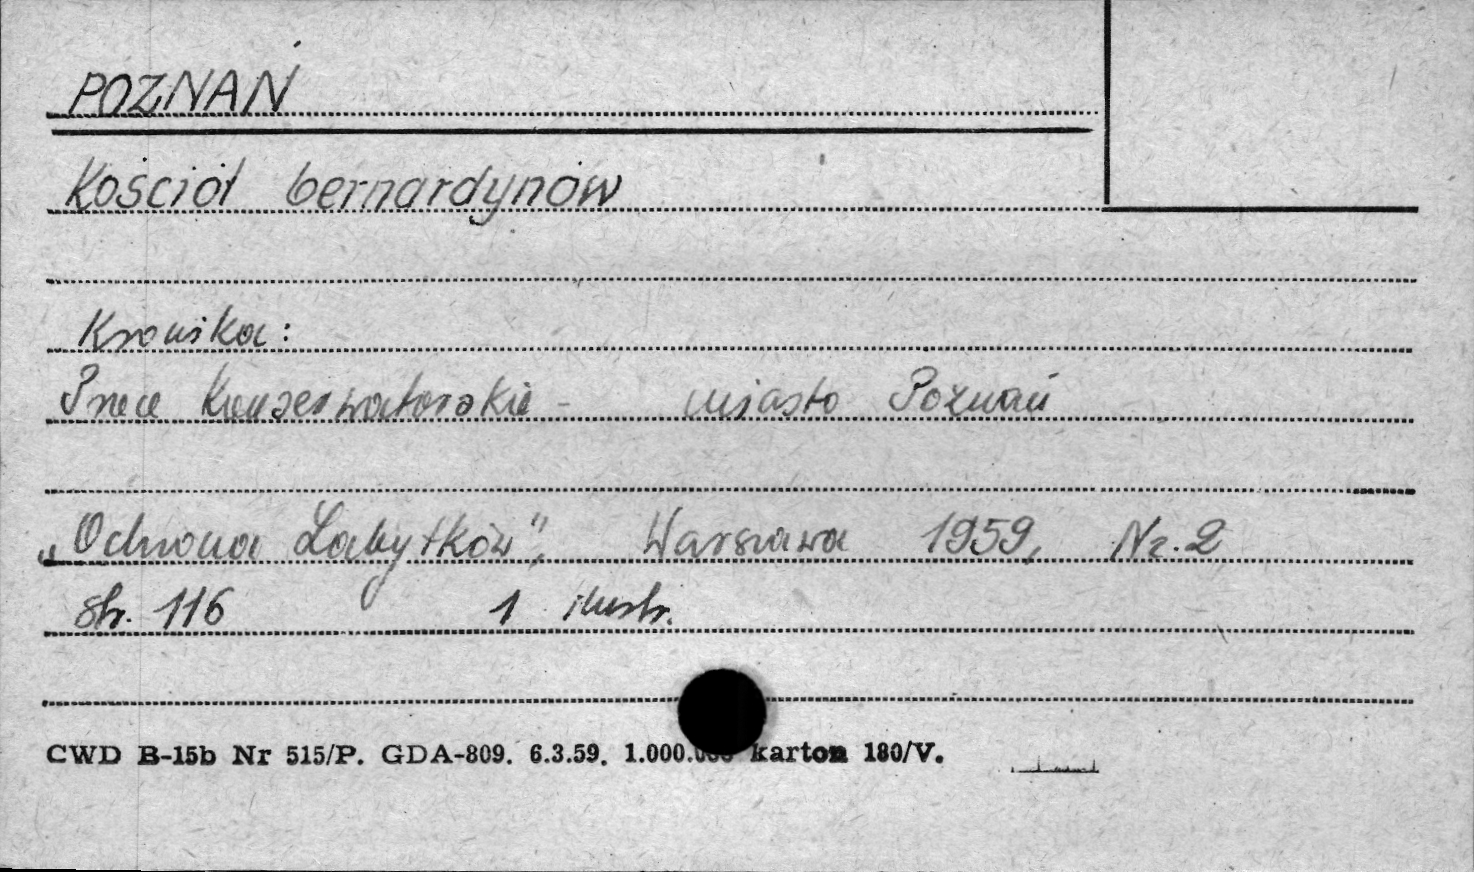 POZNAŃ
Kościół bernardynów
Kronika:
Prace Konserwatorskie - miasto Poznań
„Ochrona Zabytków", Warszawa 1959, Nr. 2
str. 116 1 ilustr.
CWD B-15b Nr 515/P. GDA-809. 6.3.59. karton 180/V.